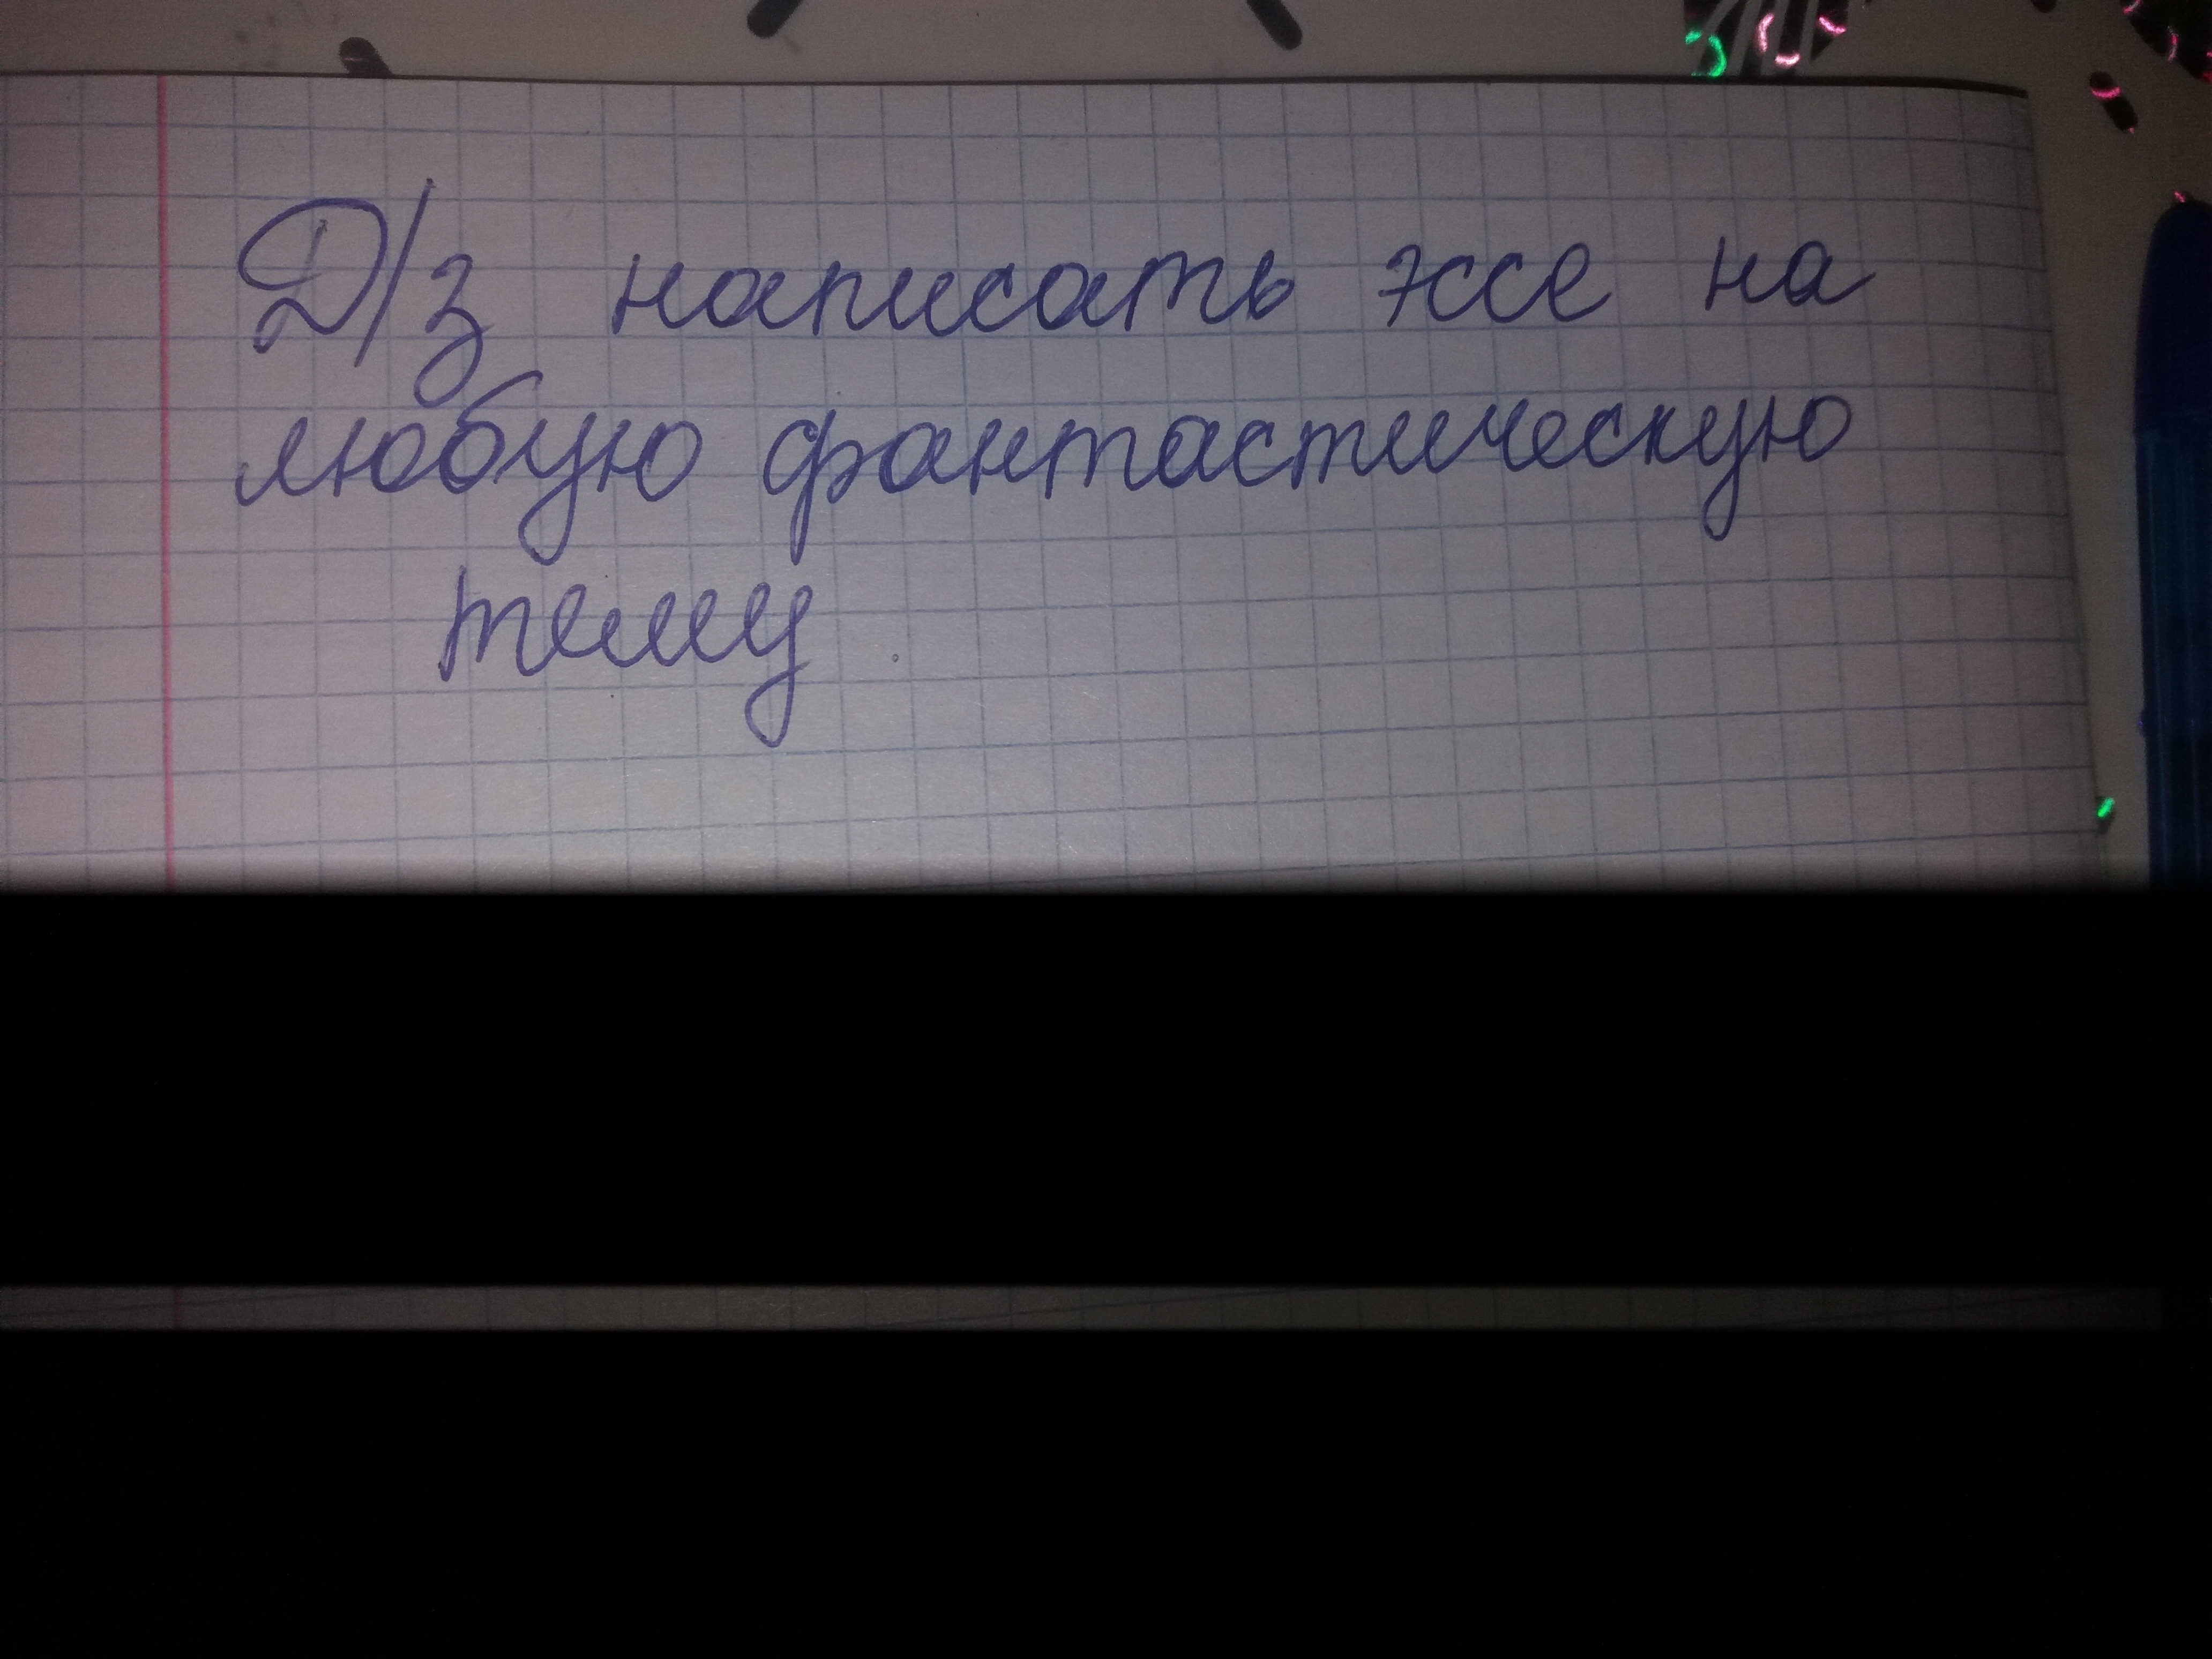 Д/з написать эссе на
любую фантастическую
тему